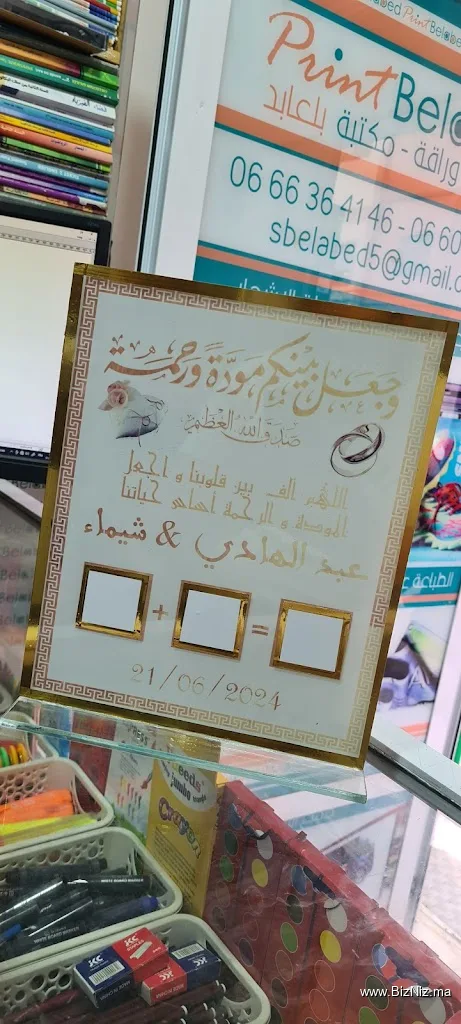 Print Bela
وراقة - مكتبة بلعابد
06 66 36 41 46 - 06 60
sbelabed5@gmail.c
وجعل بينكم مودة ورحمة
صدق الله العظيم
اللهم ألف بين قلوبنا و اجعل
المودة و الرحمة أساس حياتنا
عبد الهادي & شيماء
+ =
21/06/2024
الطباعة
Crayon
KC
KC
www.BizNiz.ma